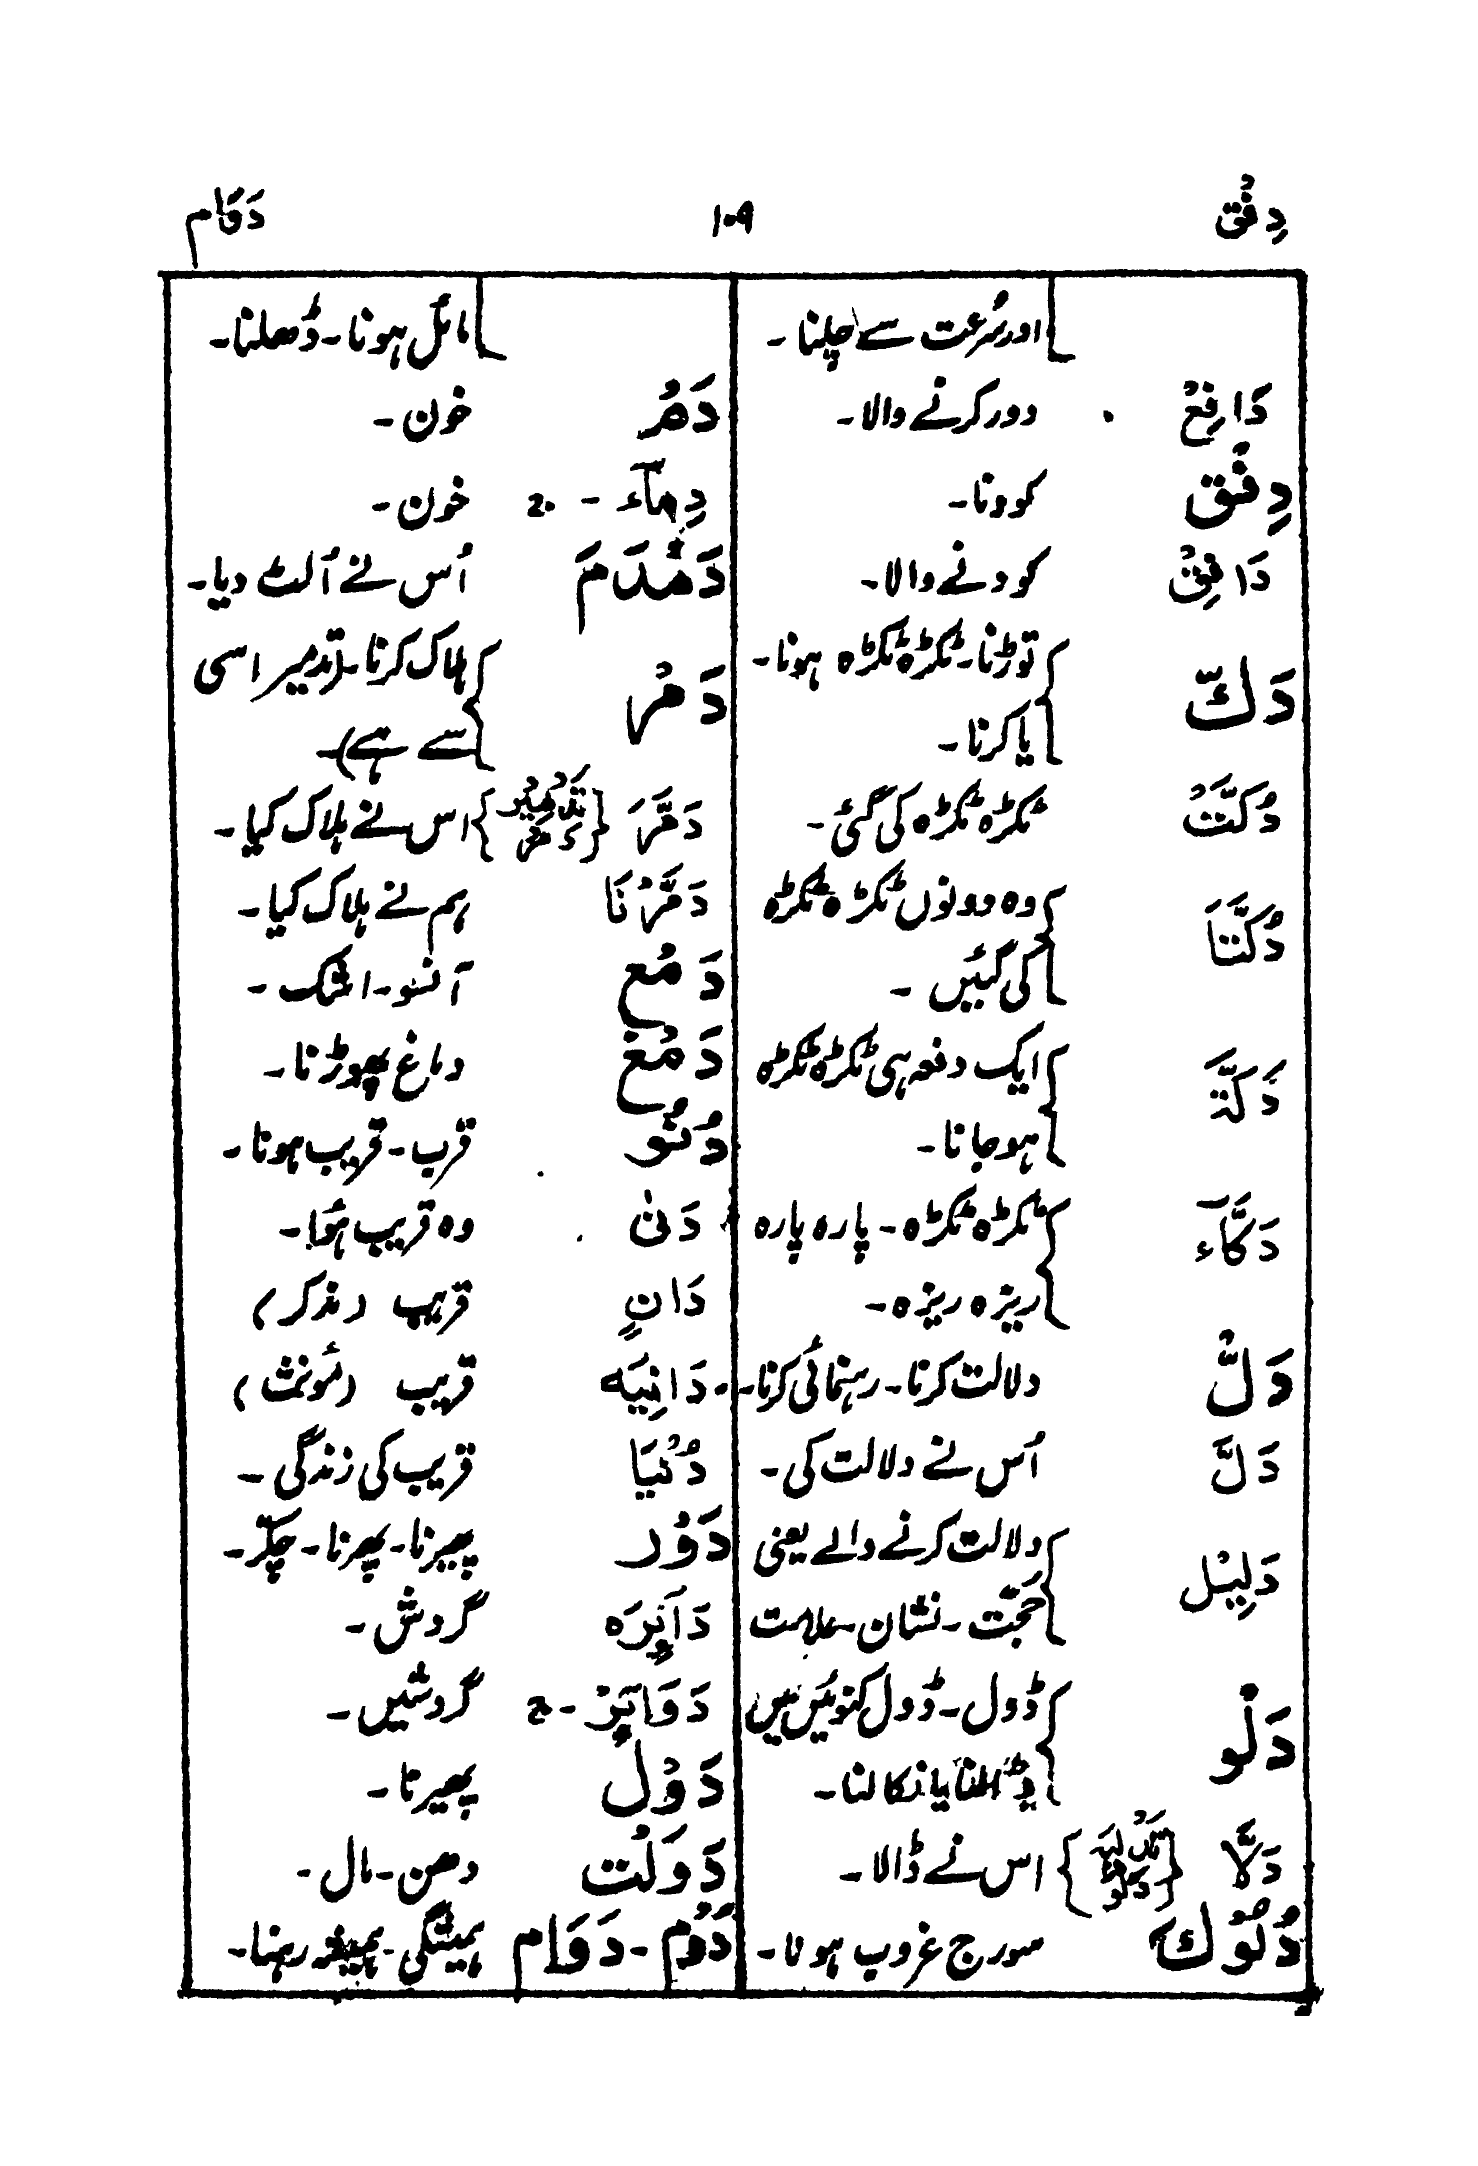 دِفْق ۱۰۹ دَوَام
اور سُرعت سے چلنا۔
دَافِعٌ دور کرنے والا۔
دِفْق کودنا۔
دَافِقٌ کودنے والا۔
دَكّ توڑنا۔ ٹکڑہ ٹکڑہ ہونا۔
یا کرنا۔
دُكَّتْ ٹکڑہ ٹکڑہ کی گئی۔
دُكَّتَا وہ دونوں ٹکڑہ ٹکڑہ
کی گئیں۔
دَكَّةً ایک دفعہ ہی ٹکڑہ ٹکڑہ
ہو جانا۔
دَكَّآء ٹکڑہ ٹکڑہ۔ پارہ پارہ
ریزہ ریزہ۔
دَلّ دلالت کرنا۔ رہنمائی کرنا۔
دَلَّ اُس نے دلالت کی۔
دَلِیْل دلالت کرنے والے یعنی
حجّت۔ نشان۔ علامت
دَلْو ڈول۔ ڈول کنوئیں میں
ڈالنا یا نکالنا۔
دَلَّا {تَدْلِیَہ دَلْو} اس نے ڈالا۔
دُلُوْك سورج غروب ہونا۔
مائل ہونا۔ ڈھلنا۔
دَمْ خون۔
دِمَآء۔ ج خون۔
دَمْدَمَ اُس نے اُلٹ دیا۔
دَمْر ہلاک کرنا۔ (تدمیر اسی
سے ہے)۔
دَمَّرَ {تَدْمِیْر دَمْر} اس نے ہلاک کیا۔
دَمَّرْنَا ہم نے ہلاک کیا۔
دَمْع آنسو۔ اشک۔
دَمْغ دماغ پھوڑنا۔
دُنُو قرب۔ قریب ہونا۔
دَنٰی وہ قریب ہُوا۔
دَانٍ قریب (مذکر)
دَانِیَه قریب (مُونث)
دُنْیَا قریب کی زندگی۔
دَوْر پھیرنا۔ پھرنا۔ چکّر۔
دَآئِرَہ گردش۔
دَوَائِرْ۔ ج گردشیں۔
دَوْل پھیرنا۔
دَوْلَت دھن۔ مال۔
دَوْم۔ دَوَام ہمیشگی۔ ہمیشہ رہنا۔